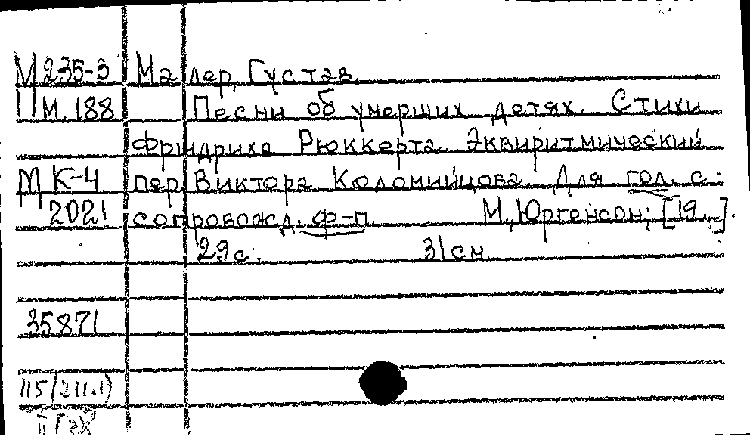 М235-3 Малер, Густав
М.188 Песни об умерших детях. Стихи
Фридриха Рюккерта. Эквиритмический
М К-4 пер. Виктора Коломийцова. Для гол. с
2021 сопровожд. ф-п. М., Юргенсон, [19..].
29с. 31см
35871